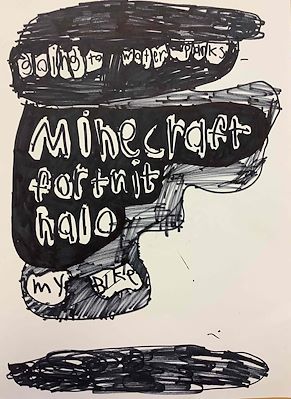 going to water parks
Minecraft
fortnit
halo
my Bike